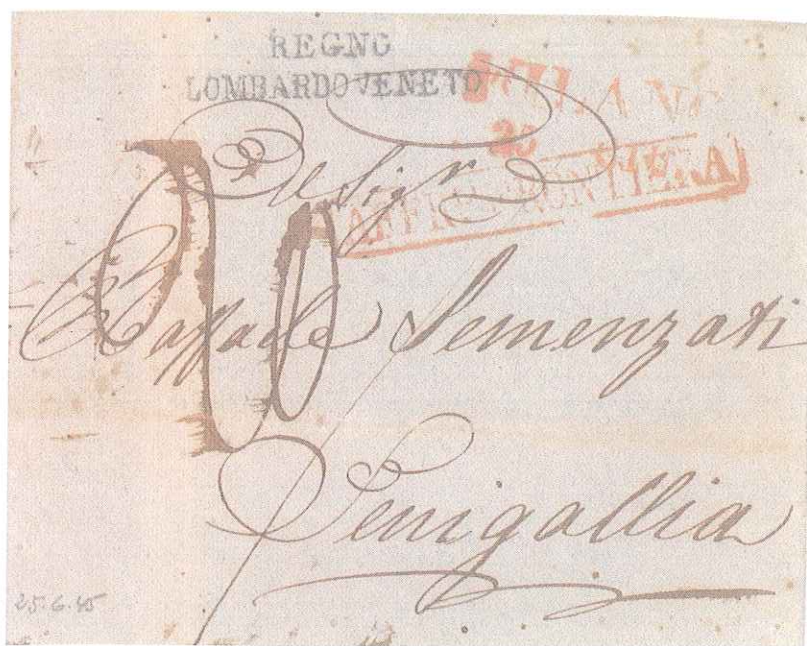 REGNO
LOMBARDO VENETO
MILANO
25
AFFR. FRONTIERA
Sigr
Raffaele Semenzati
Senigallia
25.6.45